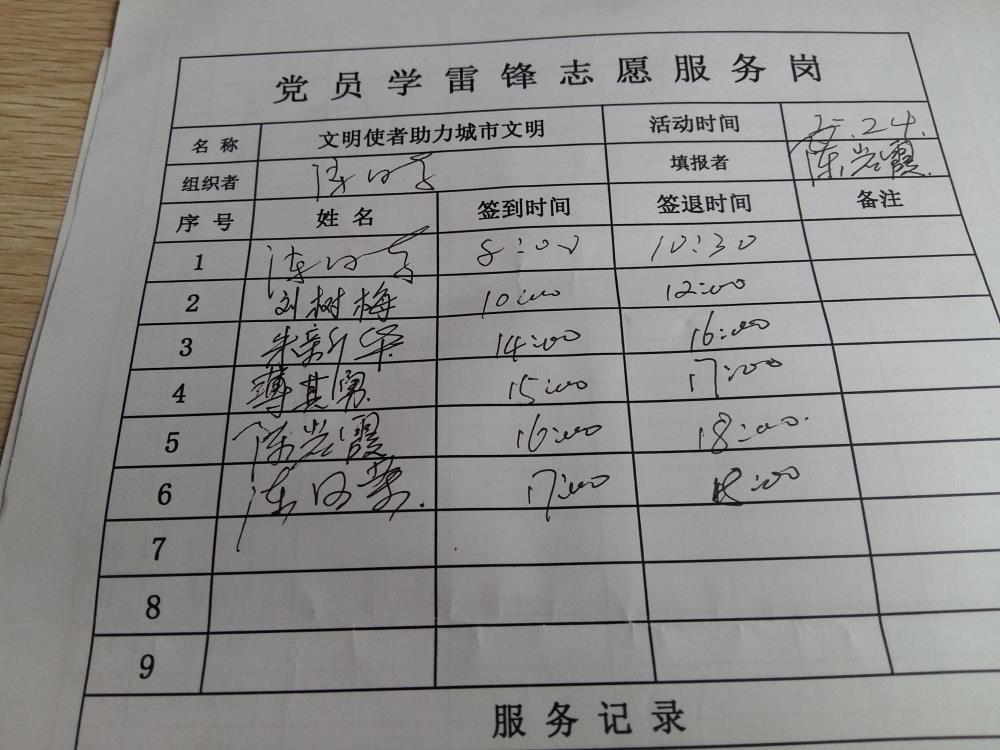 党员学雷锋志愿服务岗
名称 文明使者助力城市文明 活动时间 5.24.
组织者 填报者 陈岩霞
序号 姓名 签到时间 签退时间 备注
1 8:00 10:30
2 刘树梅 10:00 12:00
3 朱新华 14:00 16:00
4 薄其勇 15:00 17:00
5 陈岩霞 16:00 18:00
6 17:00 18:00
7
8
9
服务记录